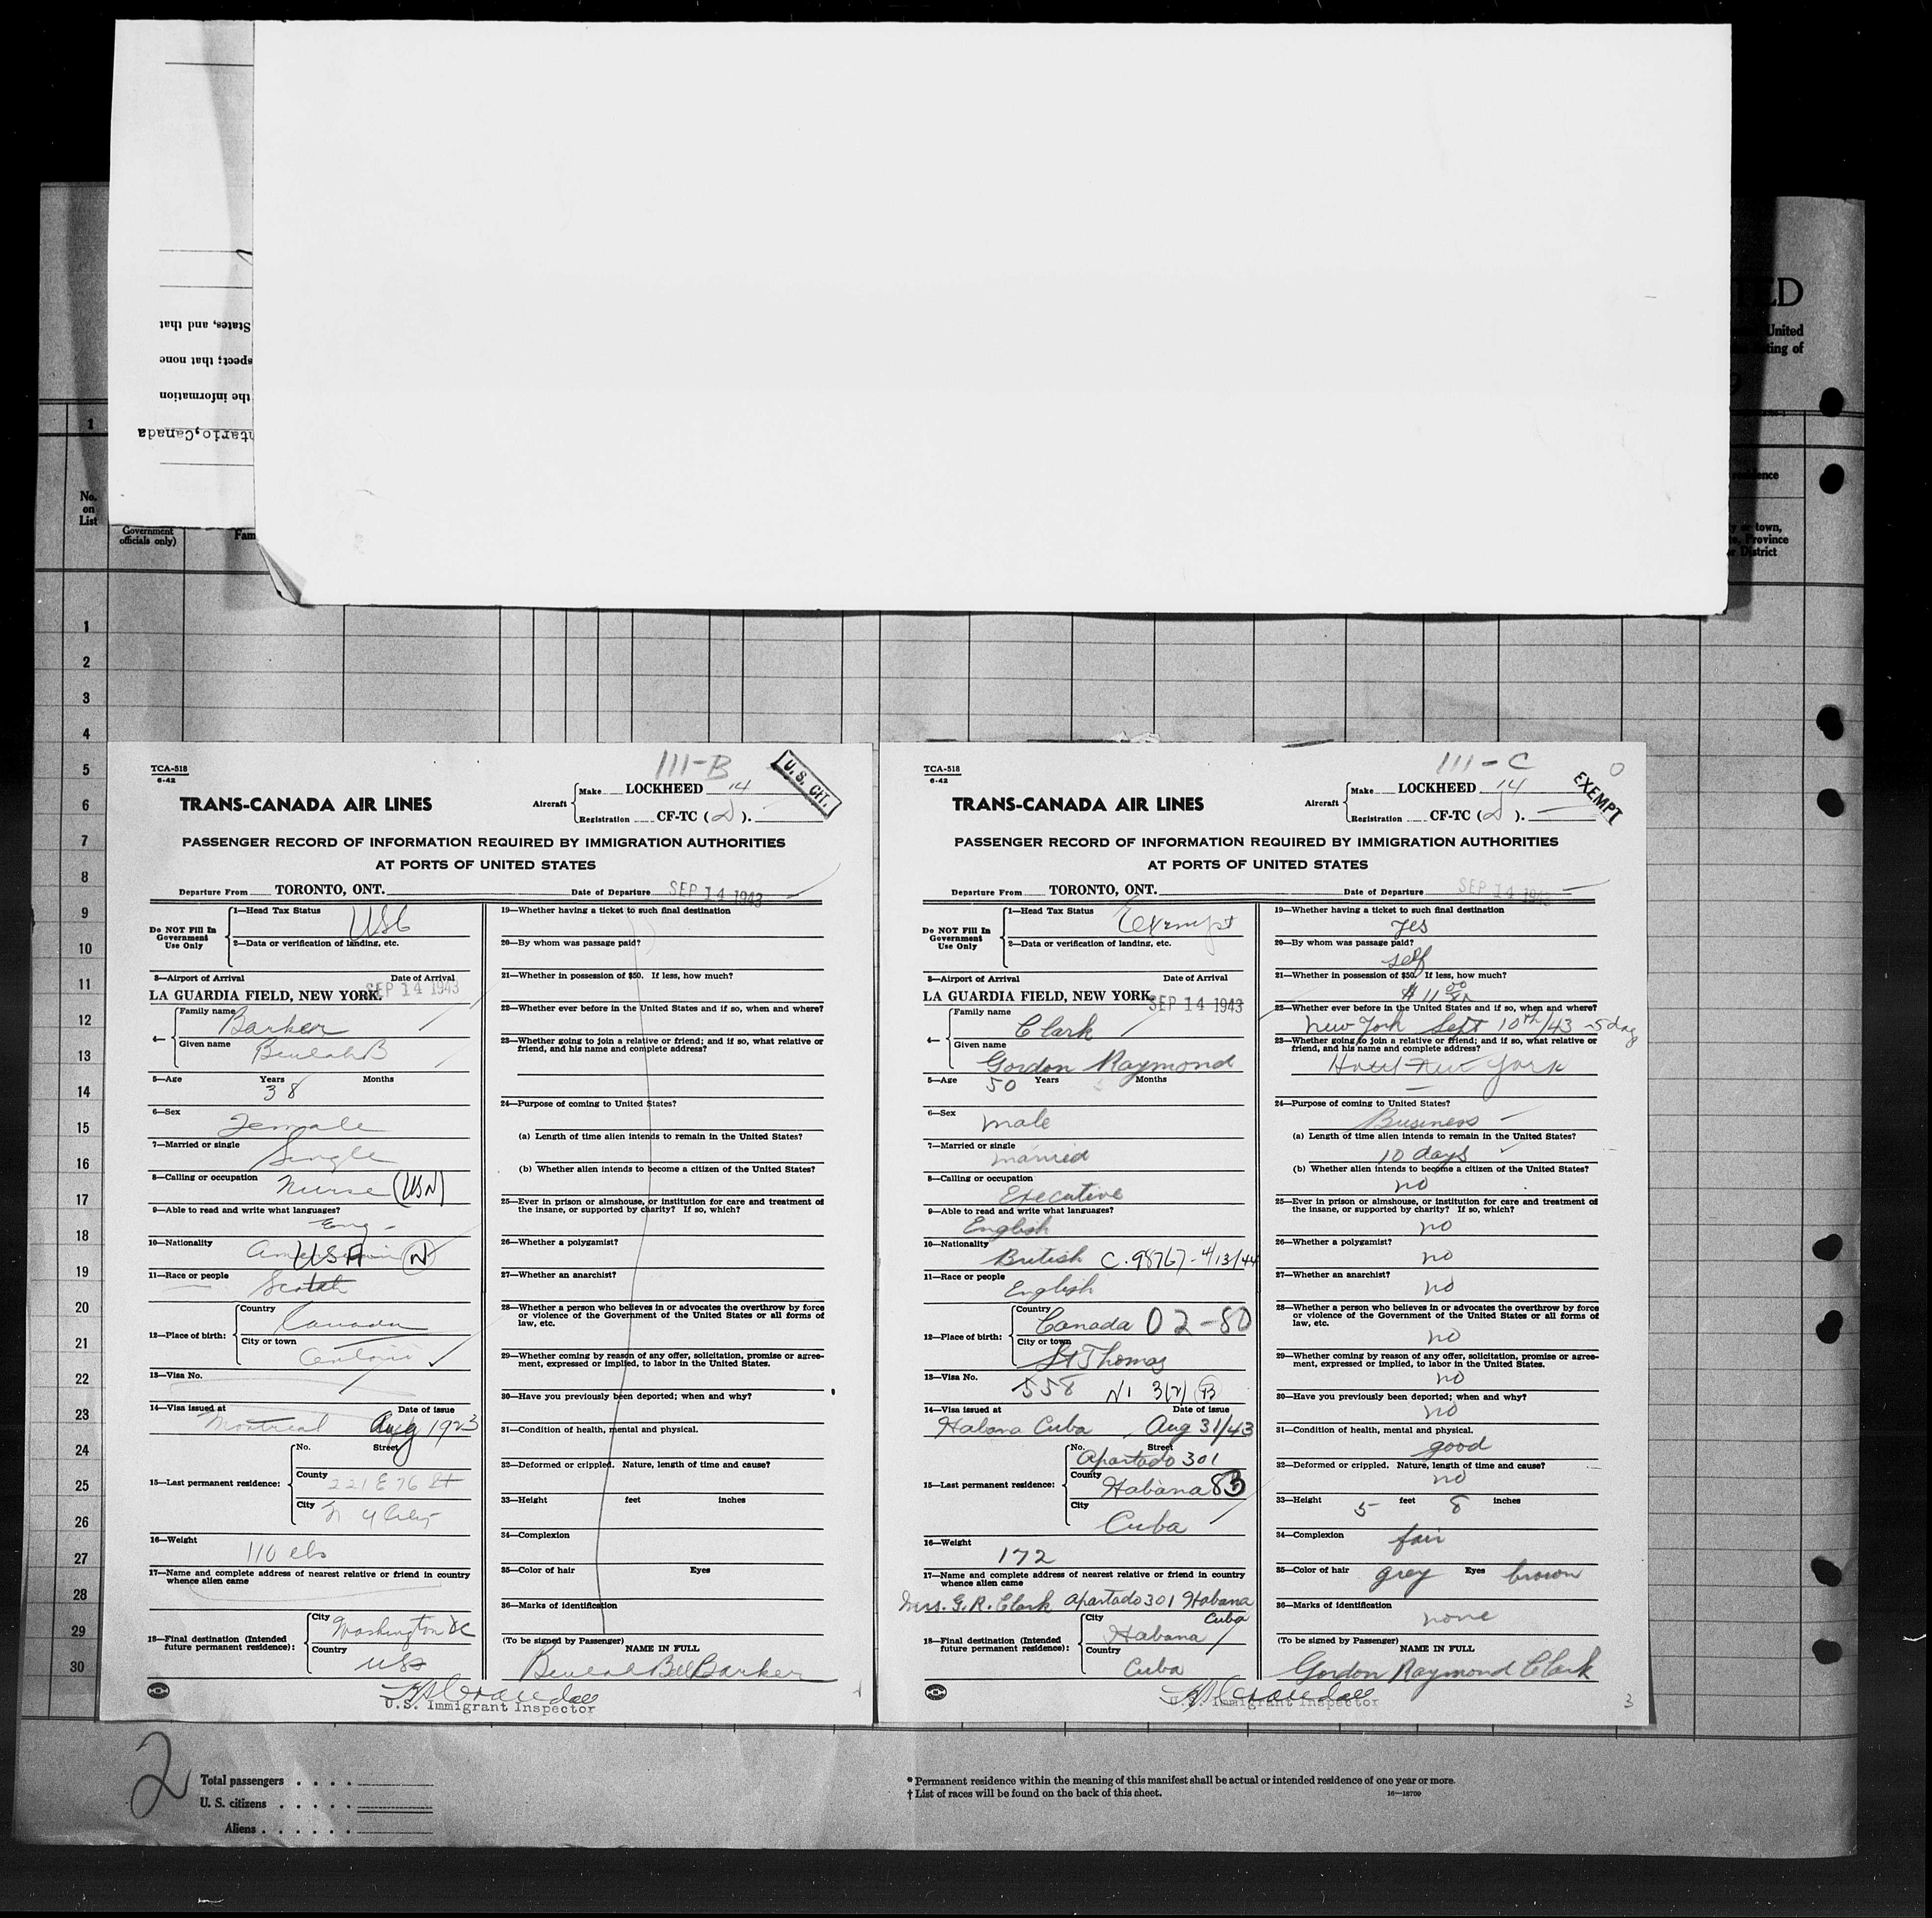 States, and that
spect; that none
the information
ntario, Canada
TED
United
ting of
1
No.
on
List
Government
officials only)
Fam
idence
y or town,
te, Province
or District
1
2
3
4
5
6
7
8
9
10
11
12
13
14
15
16
17
18
19
20
21
22
23
24
25
26
27
28
29
30
TCA-518
6-42
111-B
U. S. CIT.
TRANS-CANADA AIR LINES
Aircraft
Make LOCKHEED 14
Registration CF-TC ( ).
PASSENGER RECORD OF INFORMATION REQUIRED BY IMMIGRATION AUTHORITIES
AT PORTS OF UNITED STATES
Departure From TORONTO, ONT. Date of Departure SEP 14 1943
Do NOT Fill In
Government
Use Only
1—Head Tax Status USC
2—Data or verification of landing, etc.
3—Airport of Arrival Date of Arrival
LA GUARDIA FIELD, NEW YORK. SEP 14 1943
4—
Family name
Barker
Given name
Beulah B
5—Age Years Months
38
6—Sex
Female
7—Married or single
Single
8—Calling or occupation Nurse (USN)
9—Able to read and write what languages?
Eng -
10—Nationality American USA (N)
11—Race or people Scotch
12—Place of birth:
Country
Canada
City or town
Ontario
13—Visa No.
14—Visa issued at Date of issue
Montreal Aug 1923
15—Last permanent residence:
No. Street
County
221 E 76 St
City N Y City
16—Weight
110 lbs
17—Name and complete address of nearest relative or friend in country
whence alien came
18—Final destination (Intended
future permanent residence):
City Washington DC
Country
USA
19—Whether having a ticket to such final destination
20—By whom was passage paid?
21—Whether in possession of $50. If less, how much?
22—Whether ever before in the United States and if so, when and where?
23—Whether going to join a relative or friend; and if so, what relative or
friend, and his name and complete address?
24—Purpose of coming to United States?
(a) Length of time alien intends to remain in the United States?
(b) Whether alien intends to become a citizen of the United States?
25—Ever in prison or almshouse, or institution for care and treatment of
the insane, or supported by charity? If so, which?
26—Whether a polygamist?
27—Whether an anarchist?
28—Whether a person who believes in or advocates the overthrow by force
or violence of the Government of the United States or all forms of
law, etc.
29—Whether coming by reason of any offer, solicitation, promise or agree-
ment, expressed or implied, to labor in the United States.
30—Have you previously been deported; when and why?
31—Condition of health, mental and physical.
32—Deformed or crippled. Nature, length of time and cause?
33—Height feet inches
34—Complexion
35—Color of hair Eyes
36—Marks of identification
(To be signed by Passenger)
NAME IN FULL
Beulah Bell Barker
U.S. Immigrant Inspector
TCA-518
6-42
111-C
0
EXEMPT
TRANS-CANADA AIR LINES
Aircraft
Make LOCKHEED 14
Registration CF-TC ( ).
PASSENGER RECORD OF INFORMATION REQUIRED BY IMMIGRATION AUTHORITIES
AT PORTS OF UNITED STATES
Departure From TORONTO, ONT. Date of Departure SEP 14 1943
Do NOT Fill In
Government
Use Only
1—Head Tax Status Exempt
2—Data or verification of landing, etc.
3—Airport of Arrival Date of Arrival
LA GUARDIA FIELD, NEW YORK. SEP 14 1943
4—
Family name
Clark
Given name
Gordon Raymond
5—Age 50 Years Months
6—Sex
male
7—Married or single
married
8—Calling or occupation
Executive
9—Able to read and write what languages?
English
10—Nationality
British C.98767-4/13/44
11—Race or people
English
12—Place of birth:
Country
Canada 02-80
City or town
St Thomas
13—Visa No. 558 N1 3(2) B
14—Visa issued at Date of issue
Habana Cuba Aug 31/43
15—Last permanent residence:
No. Street
Apartado 301
County
Habana 83
City
Cuba
16—Weight
172
17—Name and complete address of nearest relative or friend in country
whence alien came
Mrs. G.R. Clark Apartado 301 Habana
Cuba
18—Final destination (Intended
future permanent residence):
City
Habana
Country
Cuba
19—Whether having a ticket to such final destination
yes
20—By whom was passage paid?
self
21—Whether in possession of $50. If less, how much?
$ 11 00/xx
22—Whether ever before in the United States and if so, when and where?
New York Sept 10th/43 -5 day
23—Whether going to join a relative or friend; and if so, what relative or
friend, and his name and complete address?
Hotel New York
24—Purpose of coming to United States?
Business
(a) Length of time alien intends to remain in the United States?
10 days
(b) Whether alien intends to become a citizen of the United States?
no
25—Ever in prison or almshouse, or institution for care and treatment of
the insane, or supported by charity? If so, which?
no
26—Whether a polygamist?
no
27—Whether an anarchist?
no
28—Whether a person who believes in or advocates the overthrow by force
or violence of the Government of the United States or all forms of
law, etc.
no
29—Whether coming by reason of any offer, solicitation, promise or agree-
ment, expressed or implied, to labor in the United States.
no
30—Have you previously been deported; when and why?
no
31—Condition of health, mental and physical.
good
32—Deformed or crippled. Nature, length of time and cause?
no
33—Height 5 feet 8 inches
34—Complexion
fair
35—Color of hair grey Eyes brown
36—Marks of identification
none
(To be signed by Passenger)
NAME IN FULL
Gordon Raymond Clark
U.S. Immigrant Inspector
3
2
Total passengers . . . .
U. S. citizens . . . . .
Aliens . . . . . .
* Permanent residence within the meaning of this manifest shall be actual or intended residence of one year or more.
† List of races will be found on the back of this sheet.
16—18709